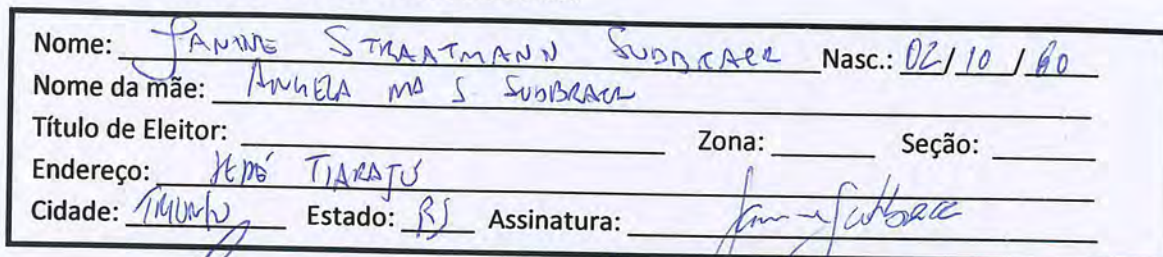 Nome: JANINE STRAATMANN SUDBRACK Nasc.: 02/10/60
Nome da mãe: ANGELA Mª S SUDBRACK
Título de Eleitor: Zona: Seção:
Endereço: SEPÉ TIARAJÚ
Cidade: TRIUNFO Estado: RS Assinatura: Janine Sudbrack